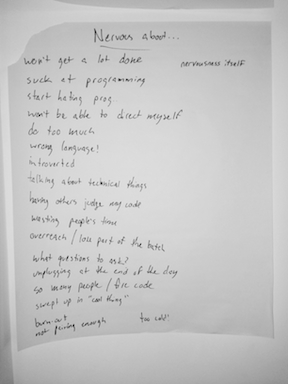 Nervous about...
won't get a lot done
nervousness itself
suck at programming
start hating prog...
won't be able to direct myself
do too much
wrong language!
introverted
talking about technical things
having others judge my code
wasting people's time
overreach / lose part of the batch
what questions to ask?
unplugging at the end of the day
so many people / fire code
swept up in "cool thing"
burn-out
not pairing enough
too cold!